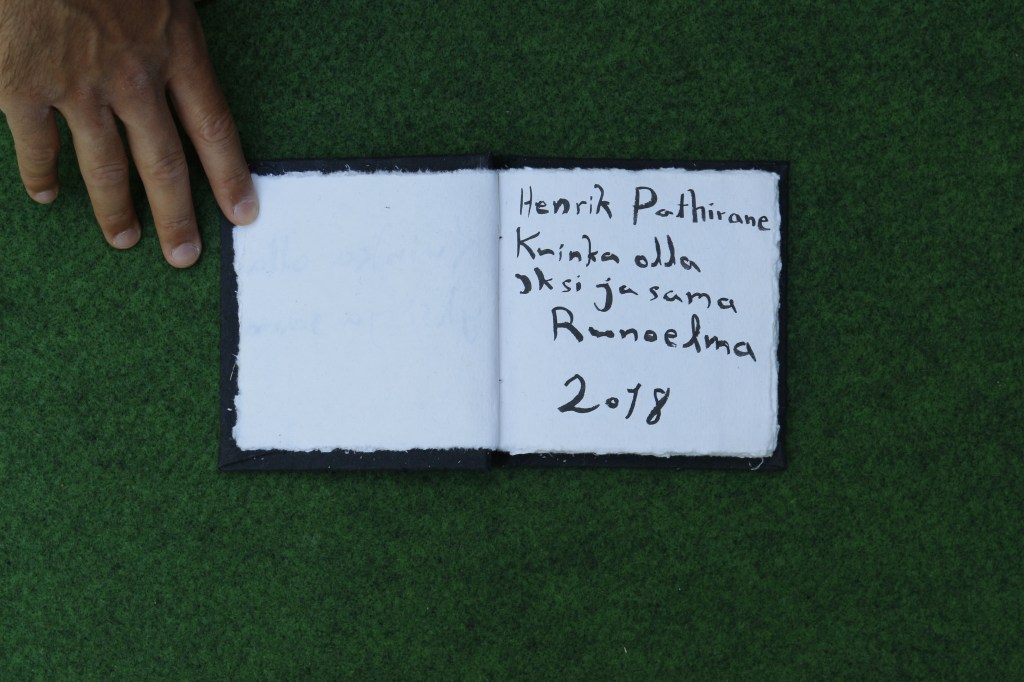 Henrik Pathirane
Kuinka olla
yksi ja sama
Runoelma
2018